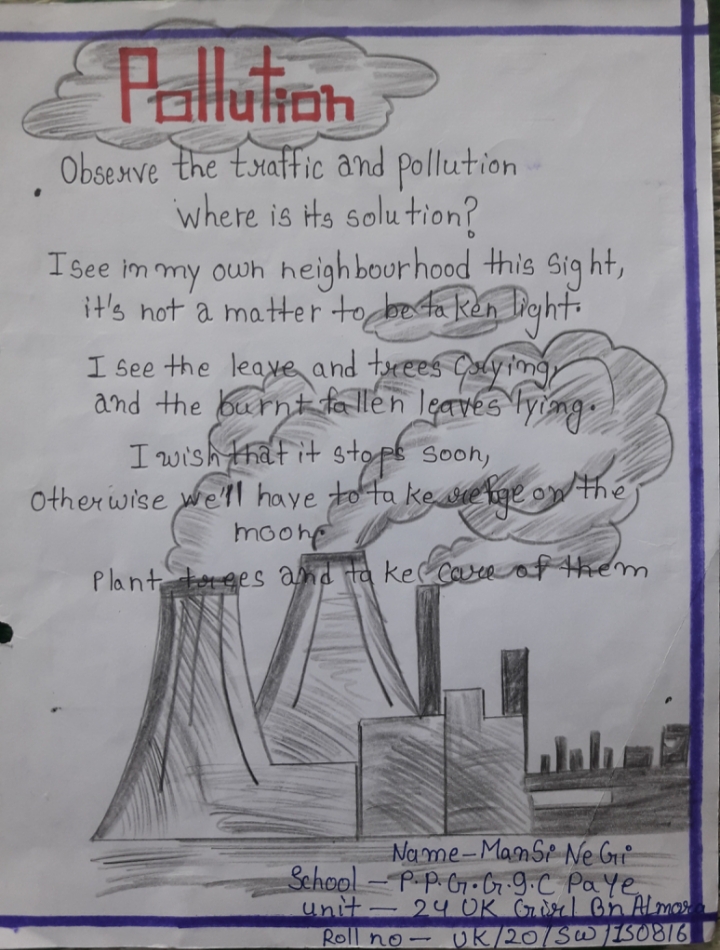 Pollution
Observe the traffic and pollution
where is its solution?
I see in my own neighbourhood this sight,
it's not a matter to be taken light.
I see the leave and trees crying,
and the burnt fallen leaves lying.
I wish that it stops soon,
Otherwise we'll have to take refge on the
moon.
Plant trees and take care of them
Name - Mansi Negi
School - P.P.G.G.g.C Paye
unit - 24 UK Girl Bn Almora
Roll no - UK/20/SW/ISO816